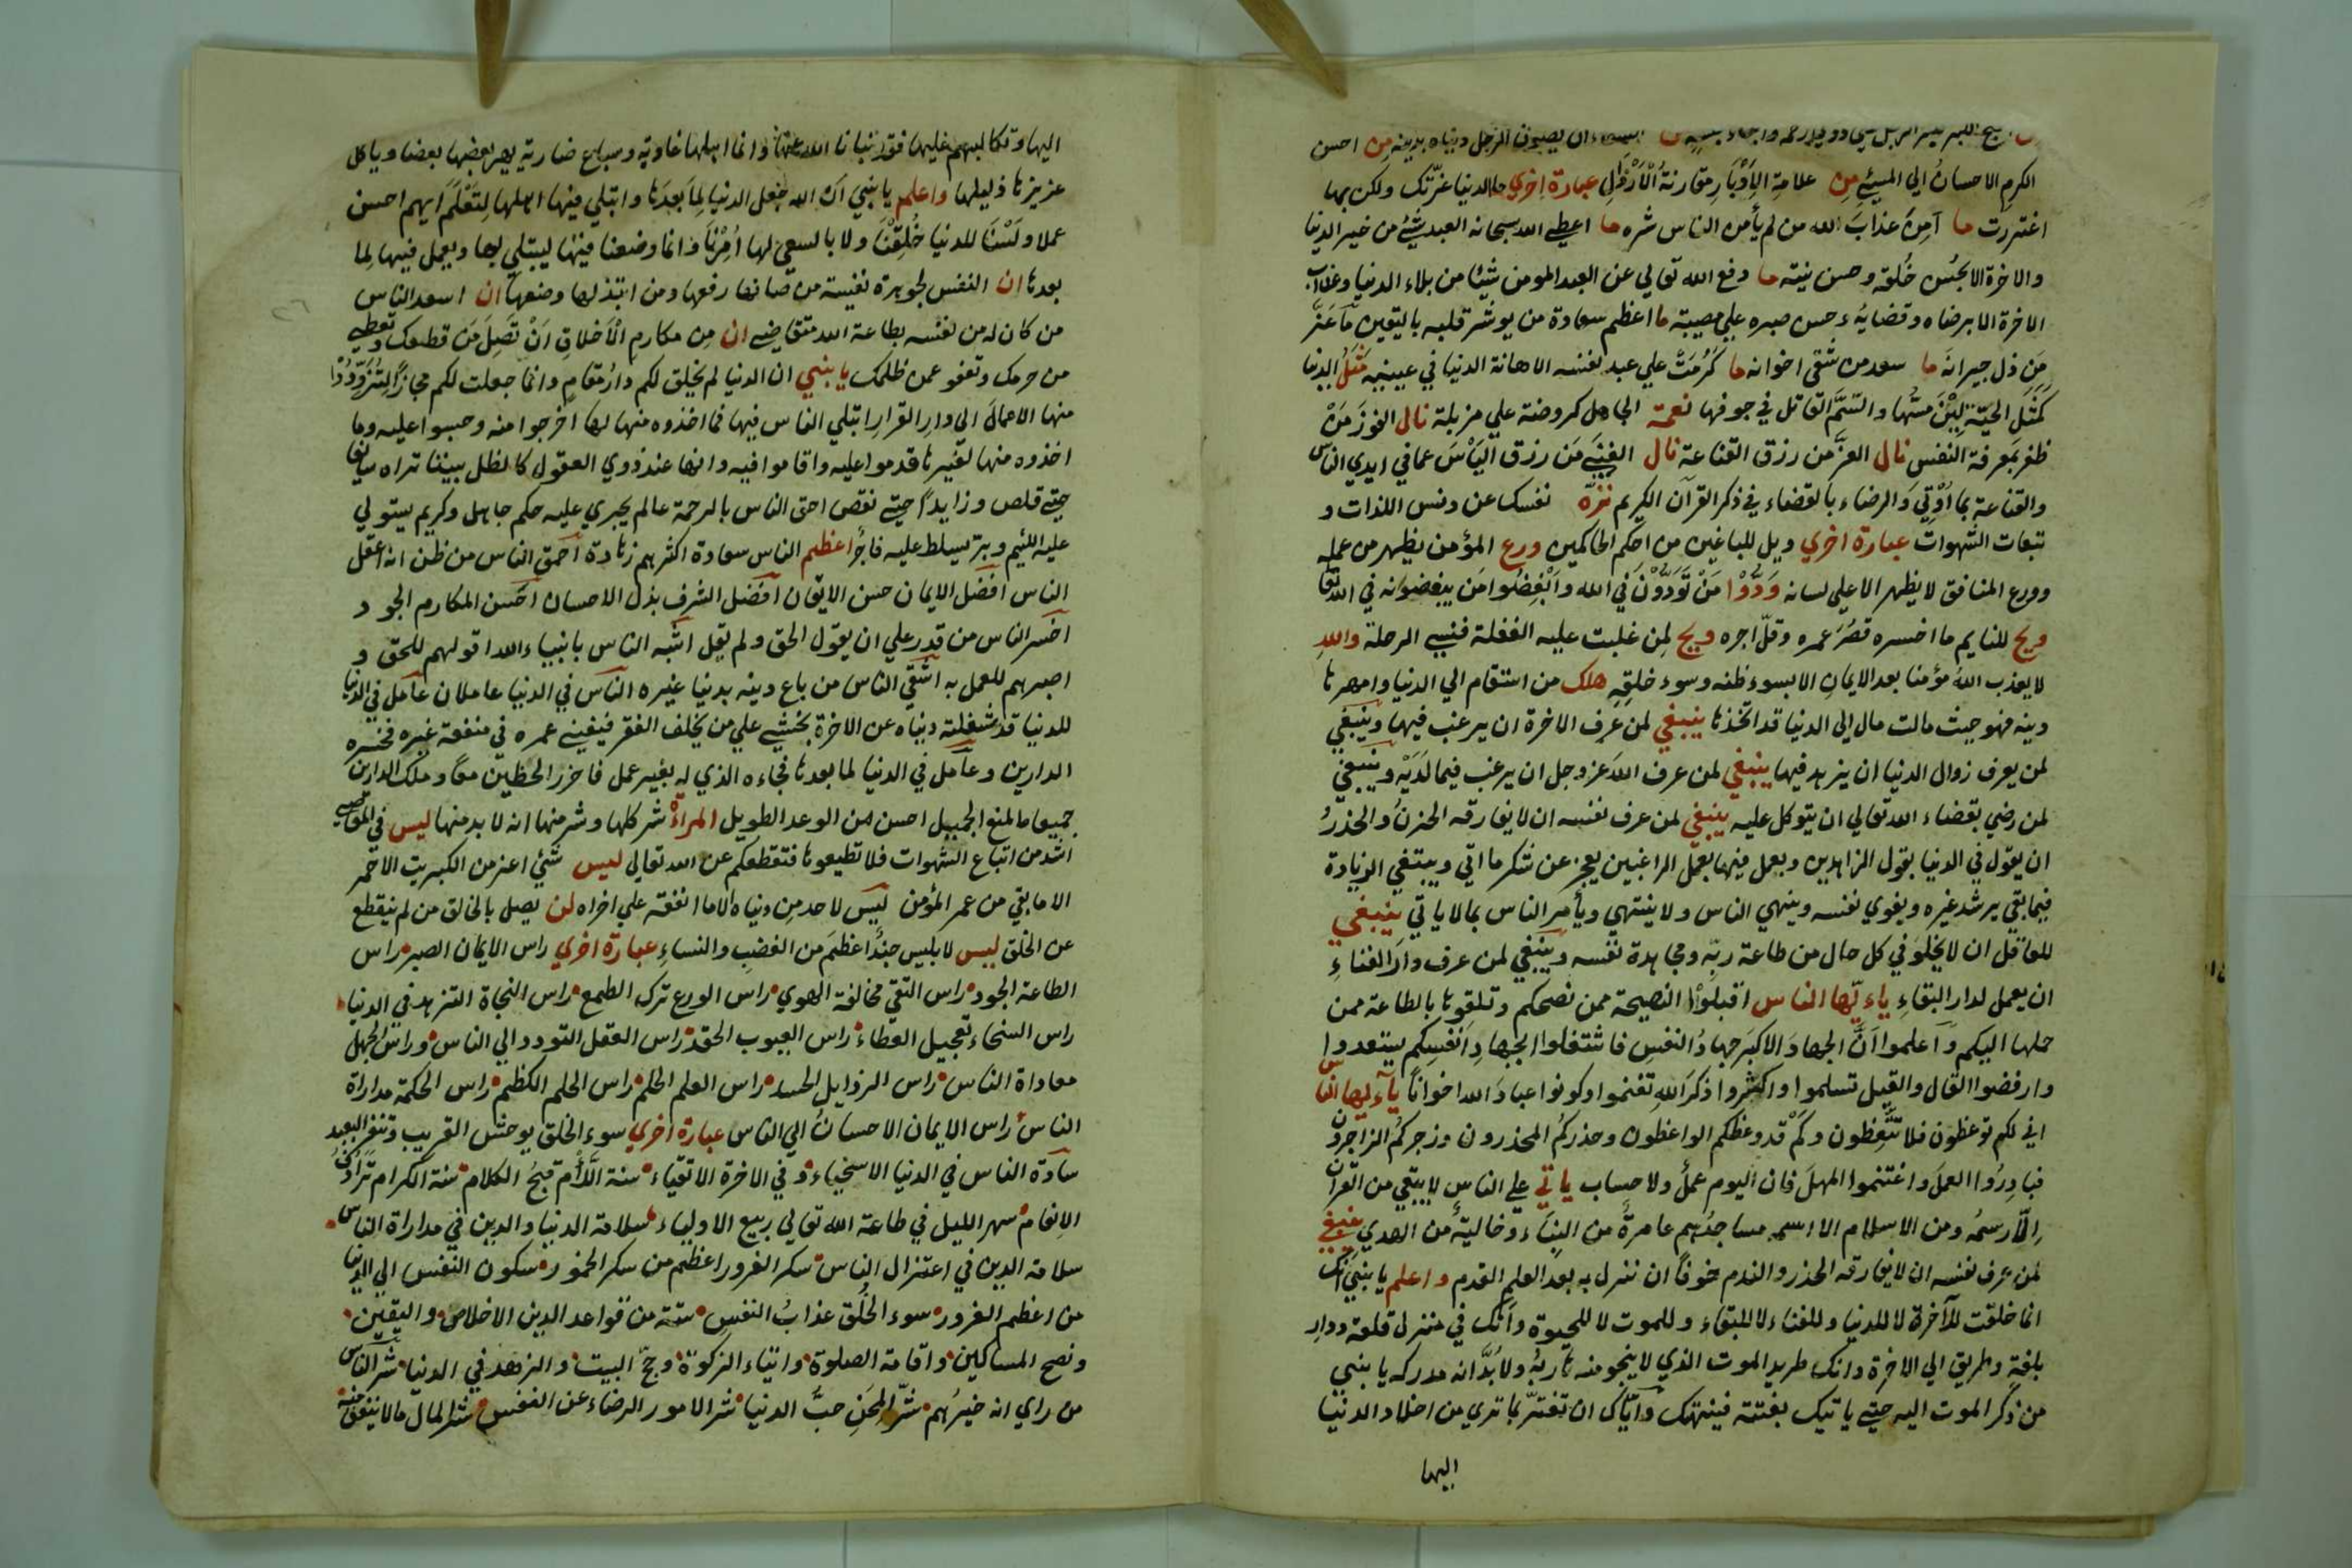 الرجل دنياه بدينه من احسن
الكرم الاحسانُ الي المسيئ مِن علامةِ الاِدْبَارِ مقارنةُ الْاَرْذَالِ عبارة اخري ما الدنيا غرّتك ولكن بها
اغتررت ما آمِنَ عذابَ الله من لم يأمن الناس شره ما اعطي الله سبحانه العبد شيئ من خير الدنيا
والاخرة الا بحُسْن خُلقه وحسن نيته ما دفع الله تعالي عن العبد المومن شيئا من بلاء الدنيا وعذاب
الاخرة الا برضاه وقضايه وحسن صبره علي مصيبة ما اعظم سعادة من يوشر قلبه باليقين ما عَزَّ
مَن ذل جيرانَه ما سعد من شقي اخوانه ما كَرُمَتْ علي عبد نفسه الا هانة الدنيا في عينيه مَثَلُ الدنيا
كَمَثَلِ الحيّة ليّن مسّها والسّمّ القاتل في جوفها نعمة الجاهل كروضة علي مزبلة نال الفوزَ مَنْ
ظفر بمعرفة النفس نال العزَّ من رزق القناعة نال الغِنَي مَن رزق اليأسَ عما في ايدي الناس
والقناعة بما اُوتِيَ والرضاء بالقضاء في ذكر القرآن الكريم نزّه نفسك عن دنس اللذات و
تبعات الشهوات عبارة اخري ويل للباغين من احكم الحاكمين ورع المؤمن يظهر من عمله
وورع المنافق لا يظهر الا علي لسانه وَدُّوْا مَنْ تَوَدُّوْنَ في الله وابْغِضُوا مَن يبغضونه في الله تعا
ويح للنايم ما اخسره قصُرَ عمره وقلّ اجره ويح لمن غلبت عليه الغفلة فنسي الرحلة والله
لا يعذب اللهُ مؤمنا بعد الايمانِ الا بسوء ظنه وسوء خلقِهِ هلك من استقام الي الدنيا وامهرها
دينه فهو حيث مالت مال الي الدنيا قد اتخذها ينبغي لمن عرف الاخرة ان يرغب فيها وينبغي
لمن يعرف زوال الدنيا ان يزهد فيها ينبغي لمن عرف اللهَ عز وجل ان يرغب فيما لَدَيْه وينبغي
لمن رضي بقضاء الله تعالي ان يتوكل عليه ينبغي لمن عرف نفسه ان لا يفارقه الحزنُ والحذرُ
ان يقول في الدنيا بقول الزاهدين ويعمل فيها بعمل الراغبين يعجز عن شكر ما اتي ويبتغي الزيادة
فيما بقي يرشد غيره ويغوي نفسه وينهي الناس ولا ينتهي ويأمر الناس بما لا ياتي ينبغي
للعاقل ان لا يخلو في كل حال من طاعة ربّه ومجاهدة نفسه وينبغي لمن عرف دار الفناءِ
ان يعمل لدار البقاءِ ياءيّها الناس اقبلوا النصيحة ممن نصحكم وتلقوها بالطاعة ممن
حملها اليكم واعلموا انَّ الجهادَ الاكبرَ جهادُ النفس فاشتغلوا بجهادِ انفسكم يستعدوا
وارفضوا القال والقيل تسلموا واكثروا ذكرَ اللهِ تغنموا وكونوا عبادَ الله اخواناً ياءيها الناس
اني لكم توعظون فلا تتّعِظون وكَمْ قد وعظكم الواعظون وحذركُمْ المحذرون وزجركُم الزاجرون
فبادِرُوا العملَ واغتنموا المهلَ فان اليوم عملٌ ولا حساب ياتي علي الناس لا يبقي من القرآن
اِلّا رسمُه ومن الاسلام الا اسمه مساجدُهم عامرةٌ من البناء وخاليةٌ من الهدي ينبغي
لمن عرف نفسه ان لا يفارقه الحذر والندم خوفًا ان ننزل به بعد العلم القدم واعلم يا بني انك
انما خلقت للآخرة لا للدنيا وللفناء لا للبقاء وللموت لا للحيوة وانك في منزل قلعة ودار
بلغة وطريق الي الاخرة وانك طريد الموت الذي لا ينجو منه هاربُه ولا بُدَّ انه مدركه يا بني
من ذكر الموت اليه حتي ياتيك بغتة فينهتك واياك ان تغترّ بما تري من اخلاد الدنيا
اليها
اليها وتكالبهم عليها فقد نبانا الله عنها وانما اهلها غاوية وسباع ضارية يهر بعضها بعضا وياكل
عزيزها ذليلها واعلم يا بني انّ الله جعل الدنيا لِمَا بعدَها وابتلي فيها اهلها لِتَعْلَمَ ايهم احسن
عملا ولَسْنَا للدنيا خُلِقْنَا ولا بالسعي لها اُمِرْنَا وانما وضعنا فيها ليبتلي بها ويعمل فيها لِما
بعدها ان النفس لجوهرة نفيسة من صانها رفعها ومن ابتذلها وضعها ان اسعد الناس
من كان له من نفسه بطاعة الله متقاضي ان مِن مكارم الاَخلاقِ اَنْ تَصِلَ مَن قطعك وتعطي
من حرمك وتعفو عمن ظلمك يا بني ان الدنيا لم يخلق لكم دارُ مقامٍ وانما جعلت لكم مجازًا لِتُزَوِّدُوْا
منها الاعمالَ الي دارِ القرارِ ابتلي الناس فيها فما اخذوه منها لها اخرجوا منه وحسبوا عليه وما
اخذوه منها لغيرها قدموا عليه واقاموا فيه وانها عند ذوي العقول كالظل بيننا تراه سابغا
حتي قلص وزايداً حتي نقص احق الناس بالرحمة عالم يجري عليه حكم جاهل وكريم يستولي
عليه اللئيم وبرّ يسلط عليه فاجرٌ اعظم الناس سعادة اكثرهم زهادة احمق الناس من ظن انه اعقل
الناس افضل الايمان حسن الايقان افضل الشرف بذل الاحسان احسن المكارم الجود
اخسر الناس من قدر علي ان يقول الحق ولم يقل اشبه الناس بانبياء الله اقولهم للحق و
اصبرهم للعمل به اشقي الناس من باع دينه بدنيا غيره الناس في الدنيا عاملان عامل في الدنيا
للدنيا قد شغلته دنياه عن الاخرة يخشي علي من يخلف الفقر فيفني عمره في منفعة غيره فخسره
الدارين وعامل في الدنيا لما بعدها فجاءه الذي له بغير عمل فاحرز الحظين معًا وملك الدارين
جميعا ما المنع الجميل احسن من الوعد الطويل المرأة شر كلها وشر منها انه لا بد منها ليس في المعاصي
اشد من اتباع الشهوات فلا تطيعوها فتقطعكم عن الله تعالي ليس شئي اعز من الكبريت الاحمر
الا ما بقي من عمر المؤمن ليس لاحد مِن دنياه الا ما انفقه علي اخراه لن يصل بالخالق من لم ينقطع
عن الخلق ليس لابليس جندٌ اعظمَ من الغضب والنساءِ عبارة اخري راس الايمان الصبر راس
الطاعة الجود راس التقي مخالفة الهوي راس الورع ترك الطمع راس النجاة التزهد في الدنيا
راس السخاء تعجيل العطاء راس العيوب الحقد راس العقل التودد الي الناس وراس الجهل
معاداة الناس راس الرذايل الحسد راس العلم الحلم راس الحلم الكظم راس الحكمة مداراة
الناس راس الايمان الاحسانُ الي الناس عبارة اخري سوء الخلق يوحش القريب وتنفر البعيد
سادة الناس في الدنيا الاسخياء وفي الاخرة الاتقياء سنة الَّلأْم قبحُ الكلام سنة الكرام تَرَادُفُ
الانعام سهر الليل في طاعة الله تعالي ربيع الاولياء سلامة الدنيا والدين في مداراة الناس
سلامة الدين في اعتزال الناس سكر الغرور اعظم من سكر الخمور سكون النفس الي الدنيا
من اعظم الغرور سوء الخُلق عذابُ النفسِ ستة من قواعد الدين الاخلاص واليقين
ونصح المساكين واقامة الصلوة وايتاء الزكوة وحجّ البيت والزهد في الدنيا شر الناس
من راي انه خيرُهم شرّ المِحَن حبُّ الدنيا شر الامور الرضاء عن النفس شر المال ما لا ينفق منه